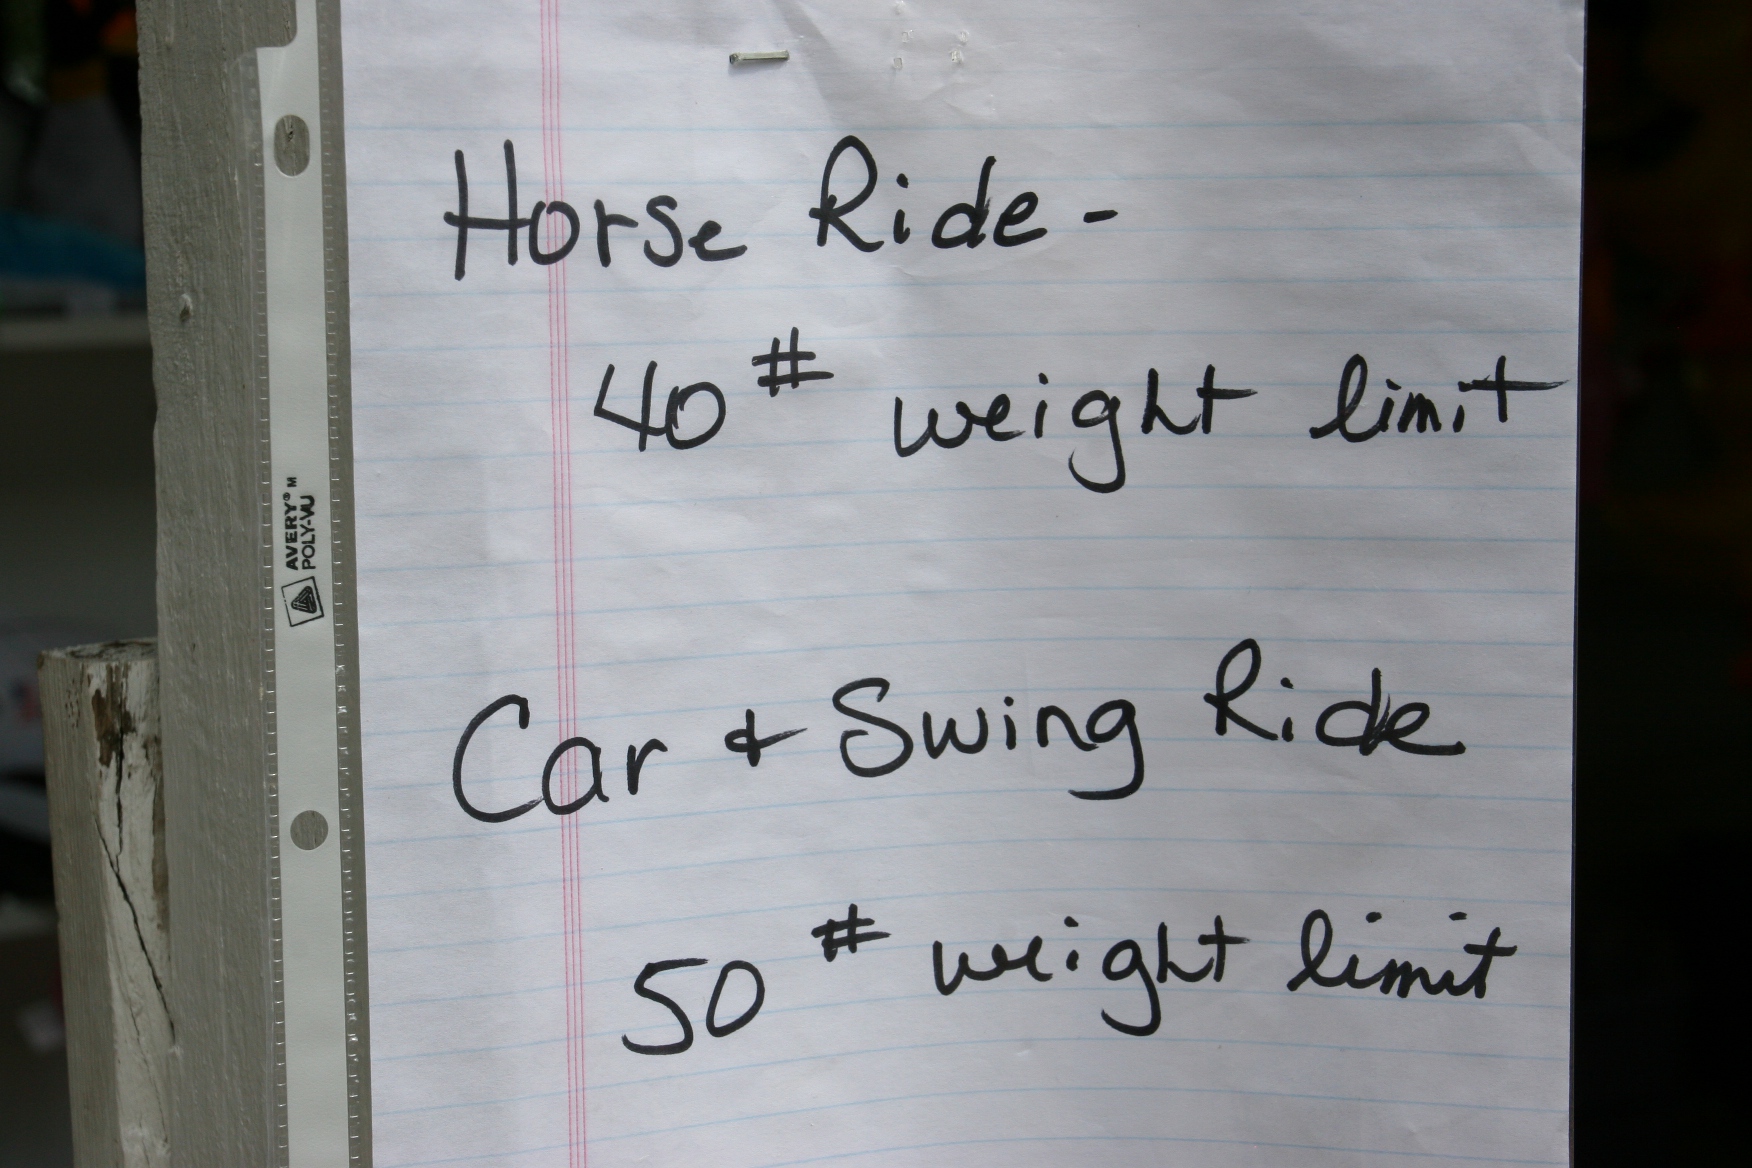 Horse Ride -
40# weight limit
Car & Swing Ride
50# weight limit
AVERY® M
POLY-VU